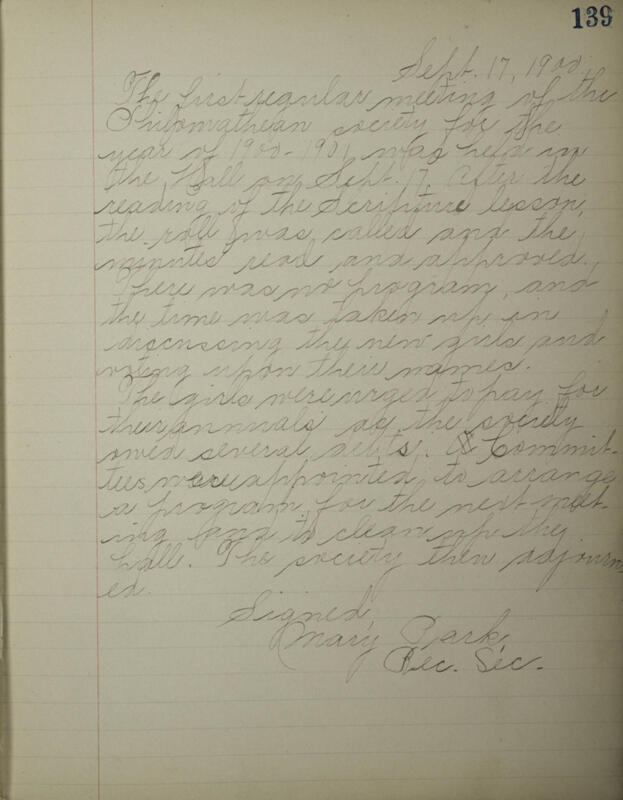 139
Sept. 17, 1900.
The first regular meeting of the
Philomathean society for the
year of 1900-1901 was held in
the Hall on Sept. 17. After the
reading of the Scripture lesson,
the roll was called and the
minutes read and approved.
There was no program, and
the time was taken up in
discussing the new girls and
voting upon their names.
The girls were urged to pay for
their annuals as the society
owed several debts. Commit-
tees were appointed to arrange
a program for the next meet-
ing and to clean up the
hall. The society then adjourn-
ed.
Signed
Mary Park,
Rec. Sec.